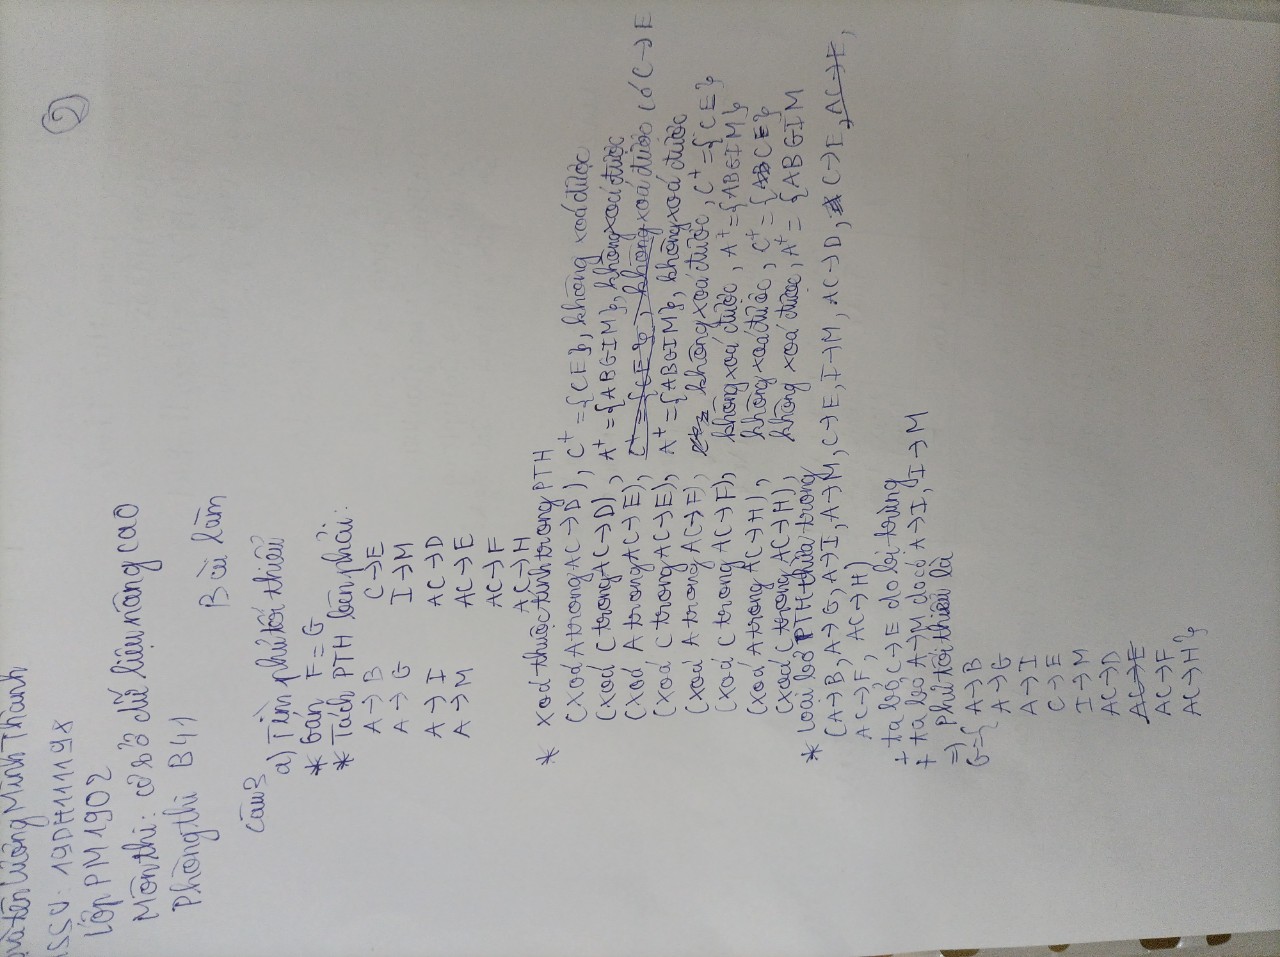 và tên Lương Minh Thành
SSV: 19DH111198
②
Lớp PM1902
Môn thi: cơ sở dữ liệu nâng cao
Phòng thi B41
Bài làm
Câu 3
a) Tìm phủ tối thiểu
* Gán F = G
* Tách PTH bên phải:
A → B C → E
A → G I → M
A → I AC → D
A → M AC → E
AC → F
AC → H
* xoá thuộc tính trong PTH
(Xoá A trong AC → D), C⁺ = {CE}, không xoá được
(xoá C trong AC → D), A⁺ = {ABGIM}, không xoá được
(xoá A trong AC → E), C⁺ = {CE}, không xoá được có C → E
(xoá C trong AC → E), A⁺ = {ABGIM}, không xoá được
(xoá A trong AC → F), không xoá được, C⁺ = {CE}
(xoá C trong AC → F), không xoá được, A⁺ = {ABGIM}
(xoá A trong AC → H), không xoá được, C⁺ = {CE}
(xoá C trong AC → H), không xoá được, A⁺ = {ABGIM
* Loại bỏ PTH thừa trong
(A → B, A → G, A → I, A → M, C → E, I → M, AC → D, C → E, AC → E,
AC → F, AC → H)
+ ta bỏ C → E do bị trùng
+ ta bỏ A → M do có A → I, I → M
=) Phủ tối thiểu là
G = { A → B
A → G
A → I
C → E
I → M
AC → D
AC → E
AC → F
AC → H }